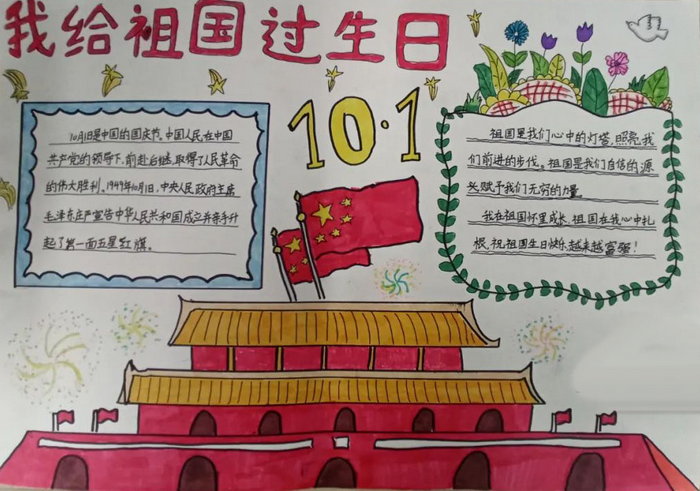 我给祖国过生日
10·1
10月1日是中国的国庆节。中国人民在中国
共产党的领导下,前赴后继,取得了人民革命
的伟大胜利。1949年10月1日,中央人民政府主席
毛泽东庄严宣告中华人民共和国成立并亲手升
起了第一面五星红旗。
祖国是我们心中的灯塔,照亮我
们前进的步伐。祖国是我们自信的源
头赋予我们无穷的力量
我在祖国怀里成长,祖国在我心中扎
根,祝祖国生日快乐,越来越富强!